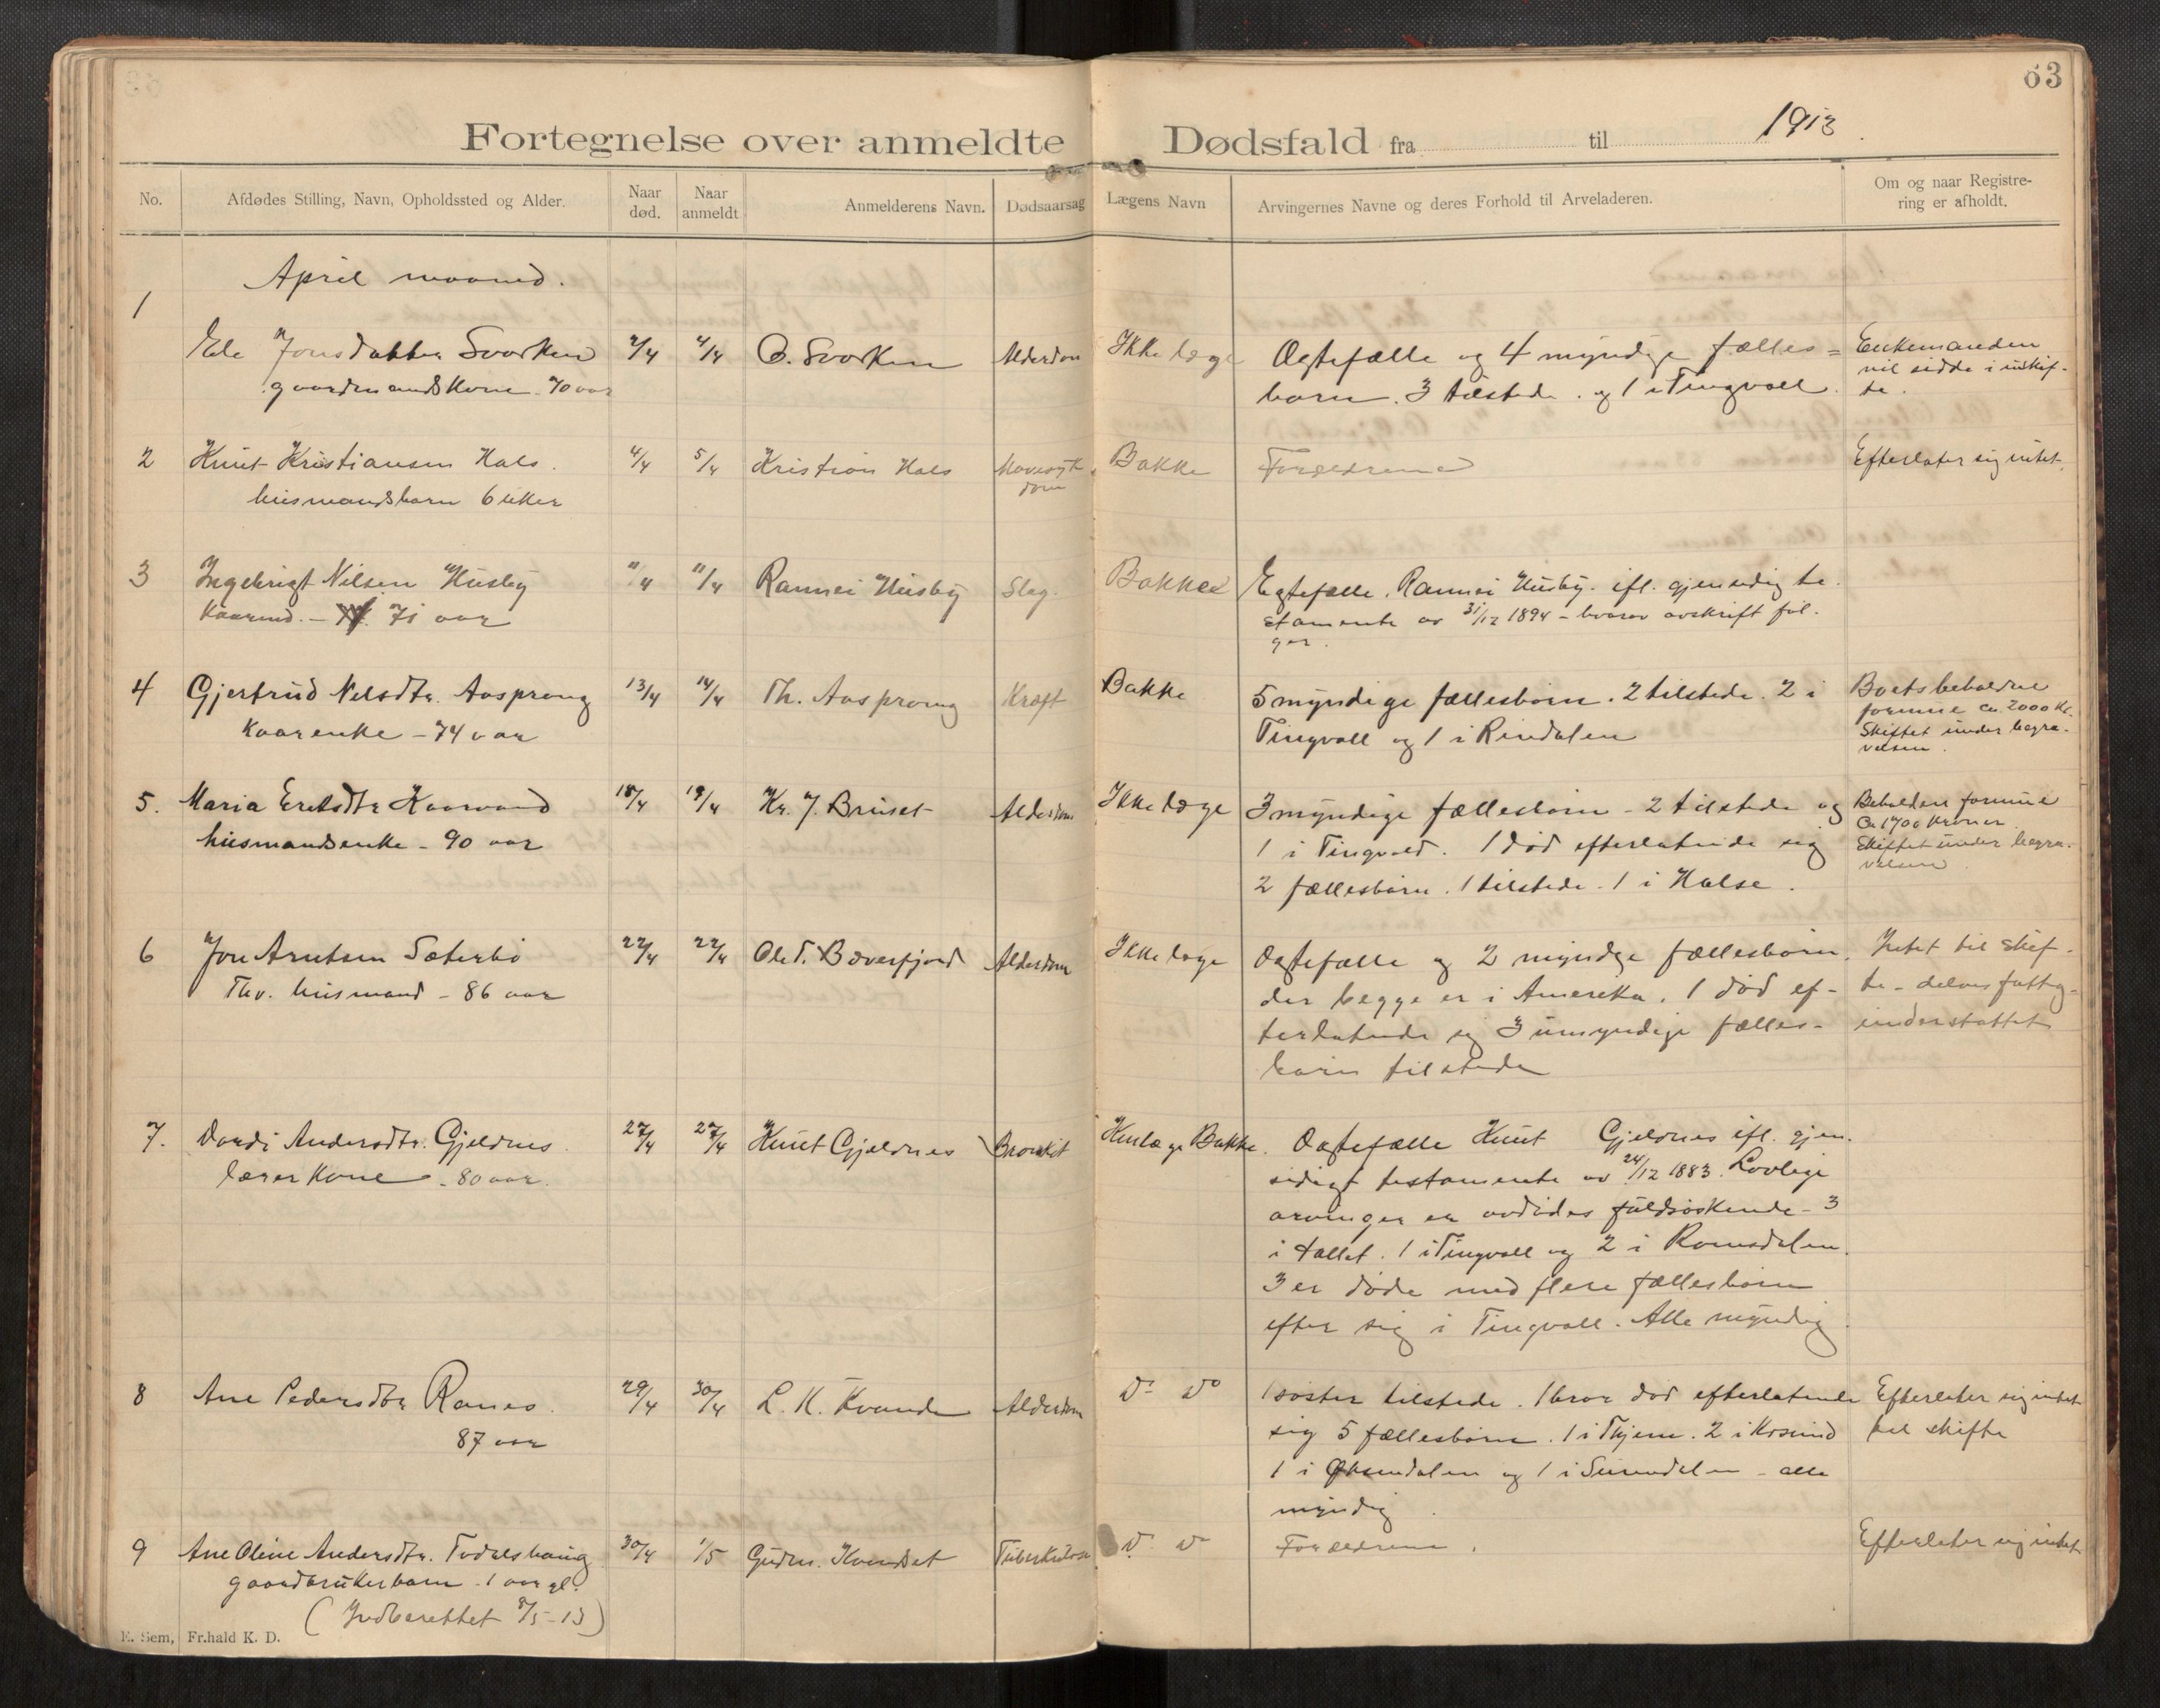 63
1913
Fortegnelse over anmeldte Dødsfald fra til
No.
Afdødes Stilling, Navn, Opholdssted og Alder.
Naar død.
Naar anmeldt
Anmelderens Navn.
Dødsaarsag
Lægens Navn
Arvingernes Navne og deres Forhold til Arveladeren.
Om og naar Registre-
ring er afholdt.
April maaned.
1
Ele Jonsdatter Svorken 2/4 4/4 O. Svorken Alderdom Ikke læge Ægtefælle og 4 myndige fælles= Enkemanden
gaardmandskone 70 aar børn. 3 tilstede. og 1 i Tingvoll. vil sidde i uskif-
te.
2 Knut Kristiansen Hals. 4/4 5/4 Kristian Hals Mavesyk Bakke Forældrene Efterlater sig intet.
husmandsbarn 6 uker dom
3 Ingebrigt Nilsen Husby 11/4 11/4 Rannei Husby Slag. Bakke Egtefælle. Rannei Husby. ifl. gjensidig te
Kaarmd. - 71 aar stamente av 31/12 1894 - hvorav avskrift føl-
ger.
4 Gjertrud Nelsdtr. Aasprong 13/4 14/4 Th. Aasprong Kræft Bakke 5 myndige fællesbörn. 2 tilstede. 2 i Boets beholdne
Kaarenke - 74 aar Tingvoll og 1 i Rindalen formue ca. 2000 Kr.
Skiftet under begra-
velsen.
5. Maria Eriksdtr Kaarvand 18/4 19/4 Kr. J. Bruset Alderdom Ikke læge 3 myndige fællesbörn - 2 tilstede og Beholden formue
husmandsenke - 90 aar 1 i Tingvold. 1 död efterlatende sig Ca 1700 kroner.
2 fællesbörn. 1 tilstede. 1 i Halse. Skiftet under begra-
velsen
6 Jon Arntsen Sæterbö 22/4 22/4 Ole T. Bæverfjord Alderdom Ikke læge Ægtefælle og 2 myndige fællesbörn. Intet til skif-
Thv. husmand - 86 aar der begge er i Amerika. 1 död ef- te - delvis fattig-
terlatende sig 3 umyndige fælles- understøttet
börn tilstede
7. Dordi Andersdtr. Gjeldnes. 27/4 27/4 Knut Gjeldnes Bronkit Kun læge Bakke. Ægtefælle Knut Gjeldnes ifl. gjen-
lærerkone - 80 aar. sidigt testamente av 24/12 1883. Lovlige
arvinger er avdödes fuldsöskende - 3
i tallet. 1 i Tingvoll og 2 i Romsdalen.
3 er döde med flere fællesbörn
efter sig i Tingvoll. Alle myndig
8 Ane Pedersdtr Ranes. 29/4 30/4 L. K. Kvande Alderdom Do Do 1 söster tilstede. 1 bror död efterlatende Efterlater sig intet
87 aar sig 5 fællesbörn. 1 i Thjem. 2 i Krsund til skifte
1 i Øksendalen og 1 i Surendalen - alle
myndig.
9 Ane Oline Andersdtr. Todalshaug 30/4 1/5 Gudm. Kvendset Tuberkulose Do Do Forældrene. Efterlater sig intet
gaardbrukerbarn. 1 aar gl.
(Indberettet 8/5-13)
E. Sem, Fr.hald K. D.